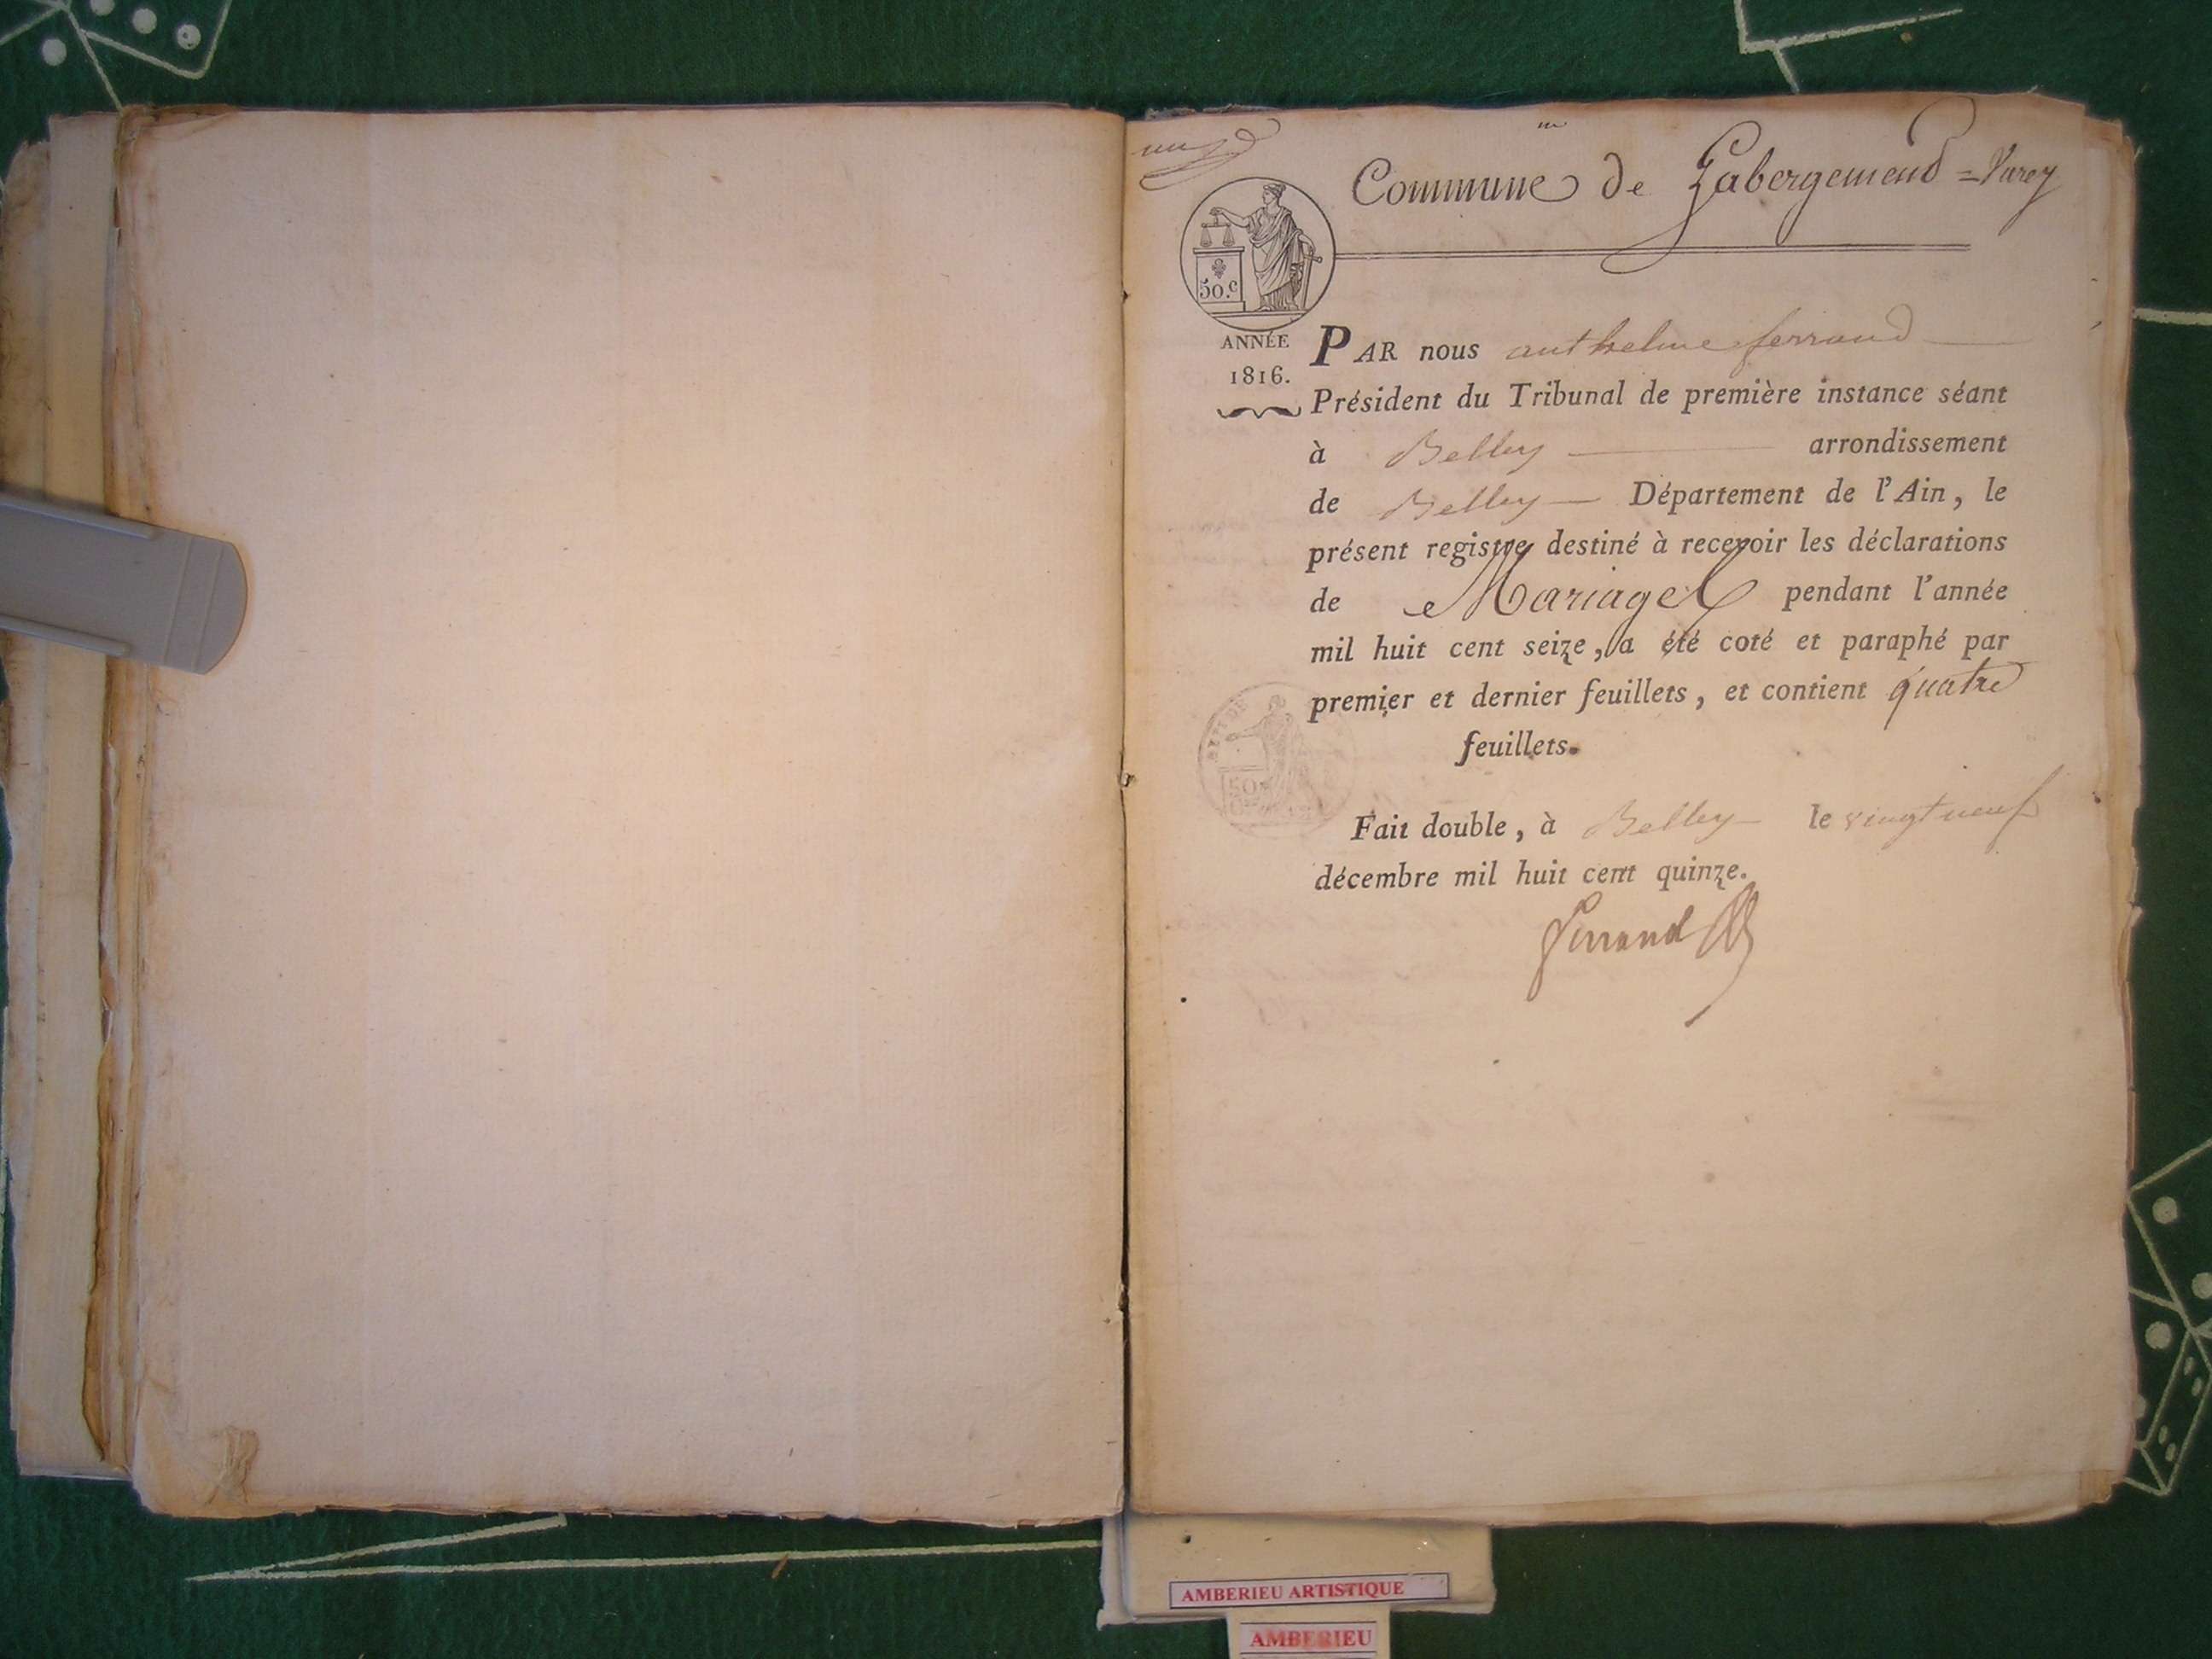 Commune de Labergement = Varey
50.c
ANNÉE
1816.
PAR nous anthelme ferrand
Président du Tribunal de première instance séant
à Belley arrondissement
de Belley Département de l'Ain, le
présent registre destiné à recevoir les déclarations
de Mariages pendant l'année
mil huit cent seize, a été coté et paraphé par
premier et dernier feuillets, et contient quatre
feuillets.
Fait double, à Belley le vingt neuf
décembre mil huit cent quinze.
Ferrand
50
AMBERIEU ARTISTIQUE
AMBERIEU